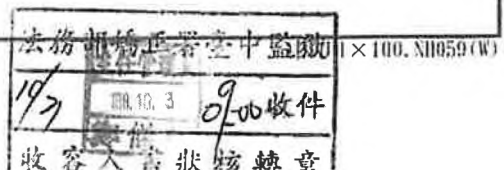 法務部矯正署臺中監獄 1×100. NH059(W)
109.10. 3
10/21 09:00收件
收容人書狀核轉章